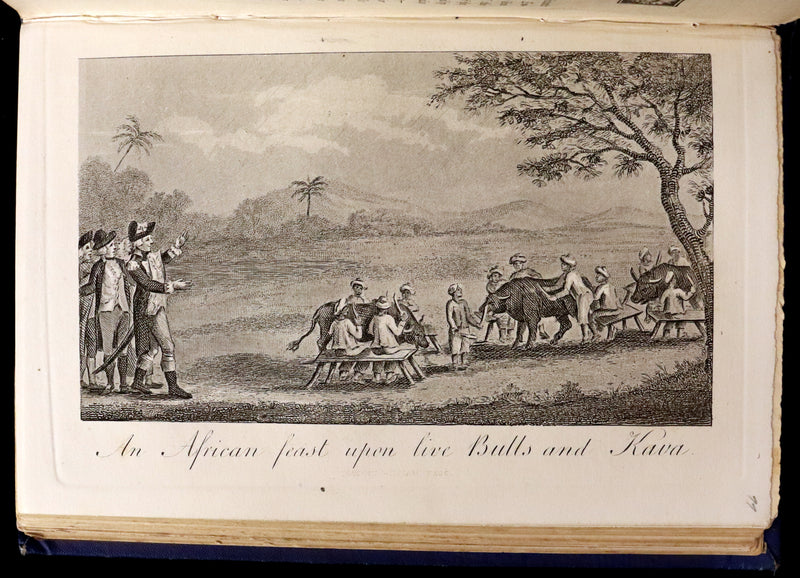 An African feast upon live Bulls and Kava.